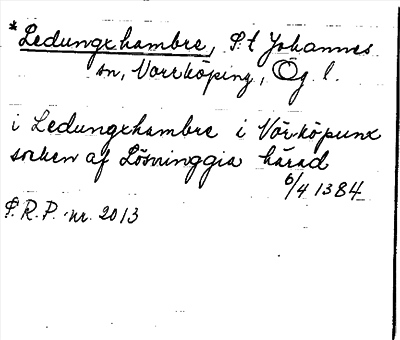 *Ledungxhambre, S:t Johannes
sn, Norrköping, Ög l.
i Ledungxhambre i Nörköpunx
socken af Lösninggia härad
6/4 1384
S.R.P. nr. 2013